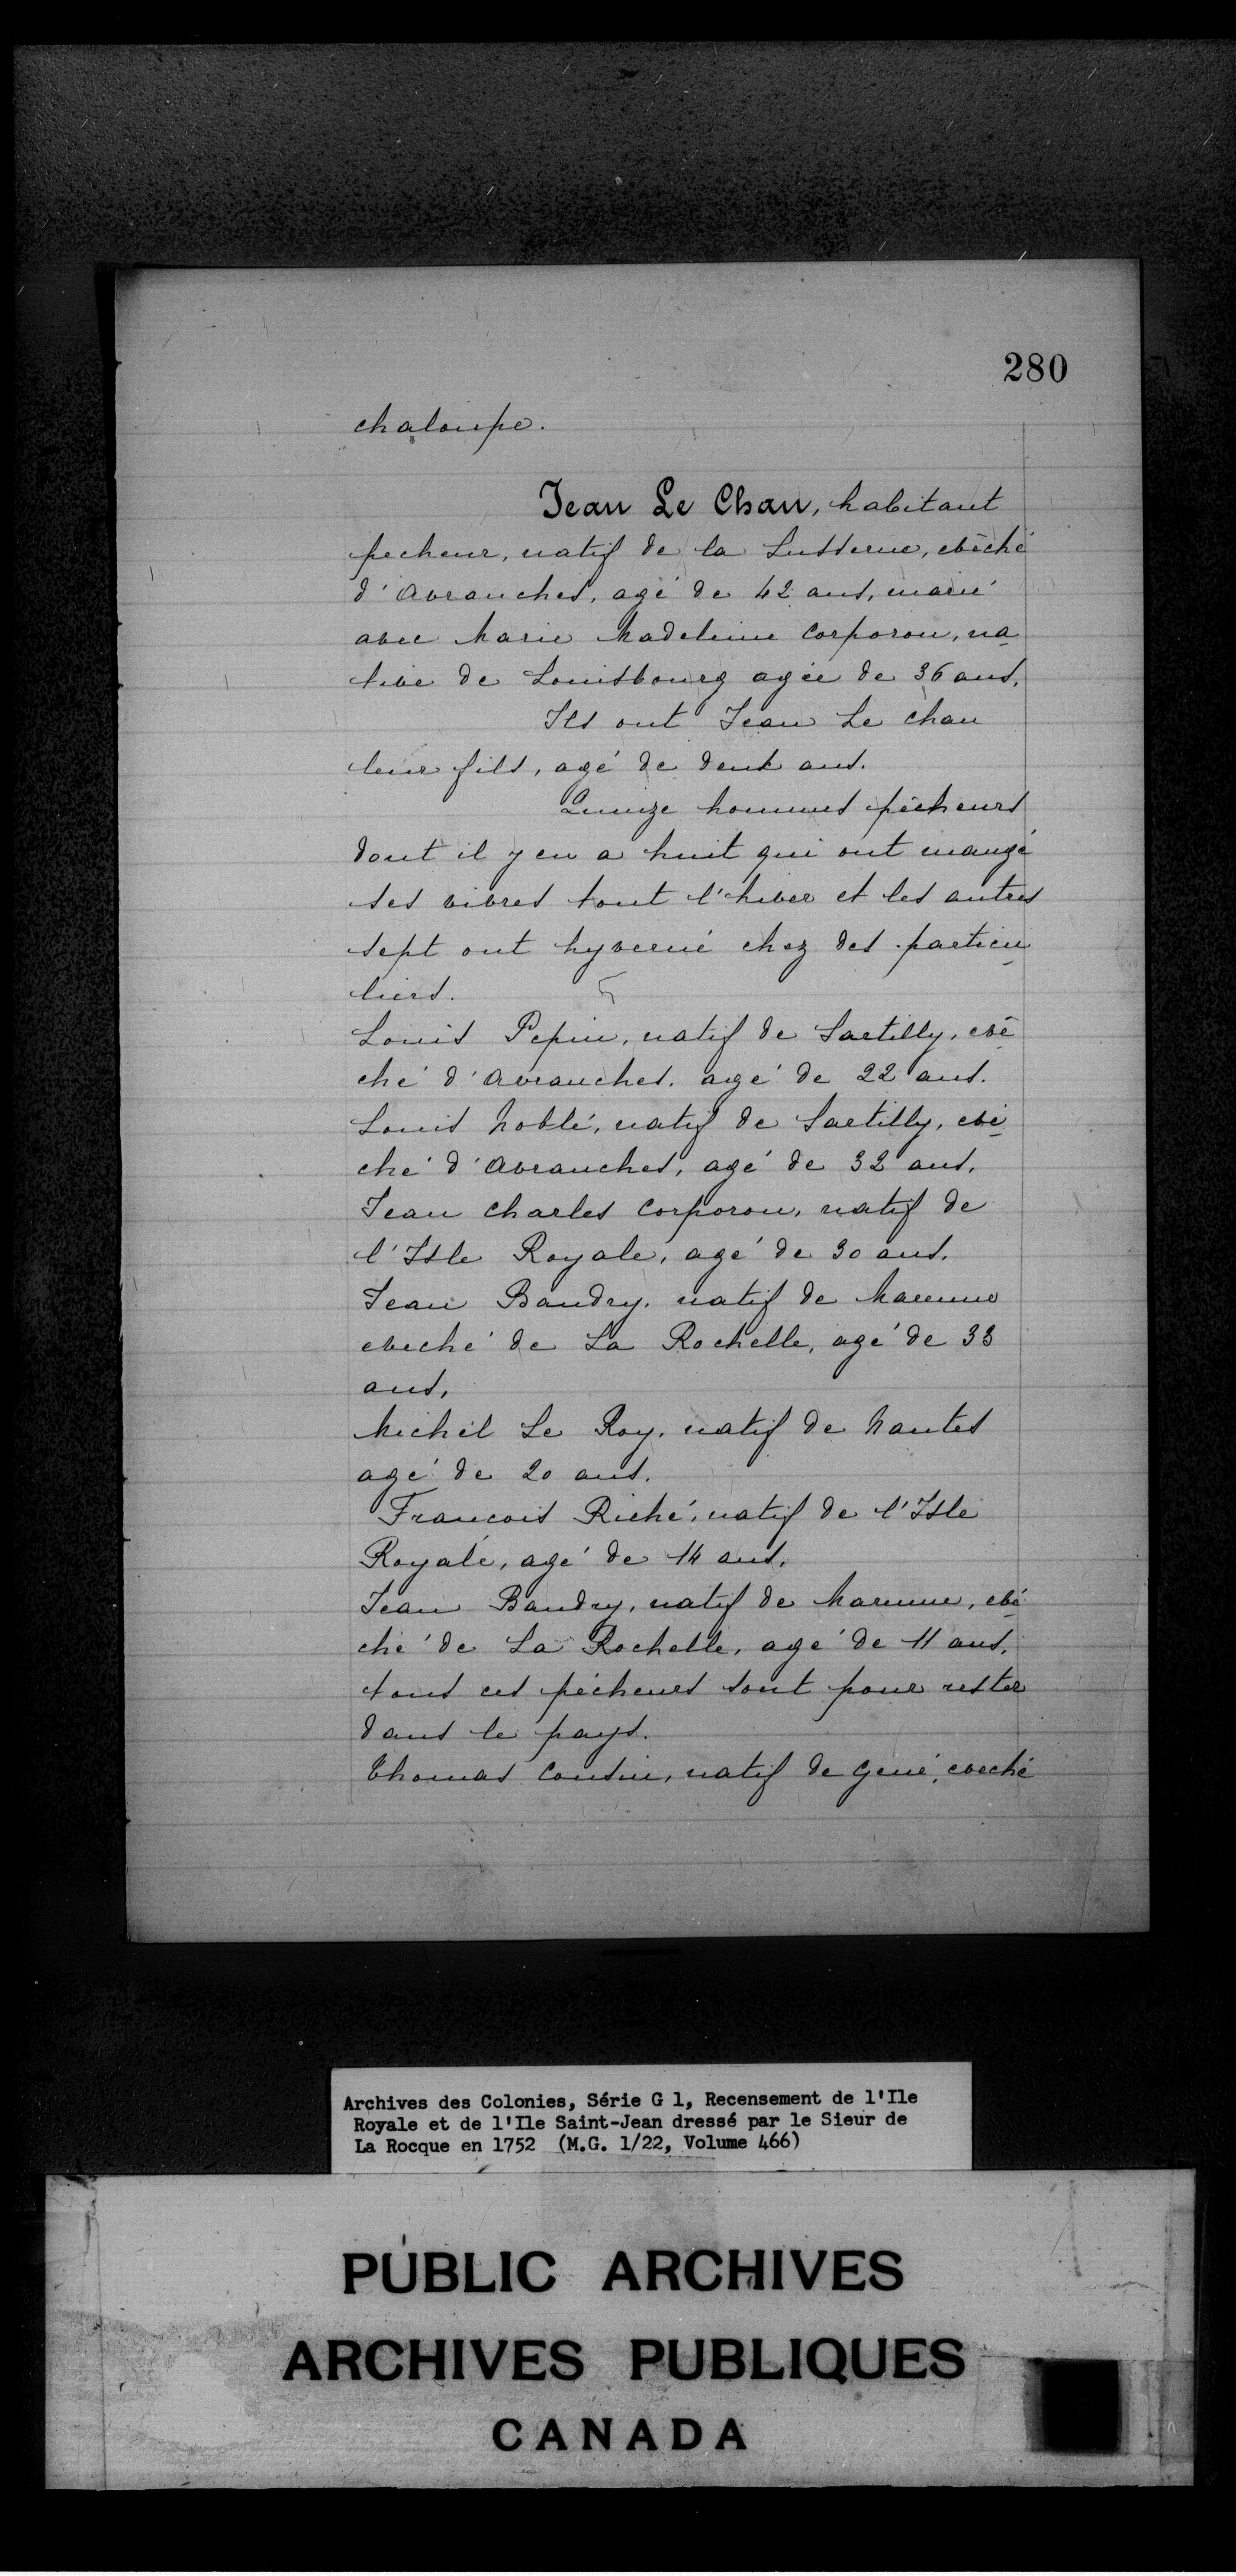 280
chaloupe.
Jean Le Chan, habitant
pecheur, natif de la Lusserne, evêché
d'Avranches, agé de 42 ans, marié
avec Marie Madeleine Corporon, na
tive de Louisbourg agée de 36 ans.
Ils ont Jean Le Chan
leur fils, agé de deux ans.
Quinze hommes pêcheurs
dont il y en a huit qui ont mangé
ses vivres tout l'hiver et les autres
sept ont hyverné chez des particu
liers.
Louis Pepin, natif de Sartilly, evê
ché d'Avranches, agé de 22 ans.
Louis Noblé, natif de Sartilly, evê
ché d'Avranches, agé de 32 ans.
Jean Charles Corporon, natif de
l'Isle Royale, agé de 30 ans.
Jean Baudry, natif de Marenne
eveché de La Rochelle, agé de 33
ans,
Michel Le Roy, natif de Nantes
agé de 20 ans.
Francois Riché, natif de l'Isle
Royale, agé de 14 ans.
Jean Baudry, natif de Marenne, evê
ché de La Rochelle, agé de 11 ans,
tous ces pêcheurs sont pour rester
dans le pays.
Thomas Cousin, natif de Gené, eveché
Archives des Colonies, Série G 1, Recensement de l'Ile
Royale et de l'Ile Saint-Jean dressé par le Sieur de
La Rocque en 1752 (M.G. 1/22, Volume 466)
PUBLIC ARCHIVES
ARCHIVES PUBLIQUES
CANADA